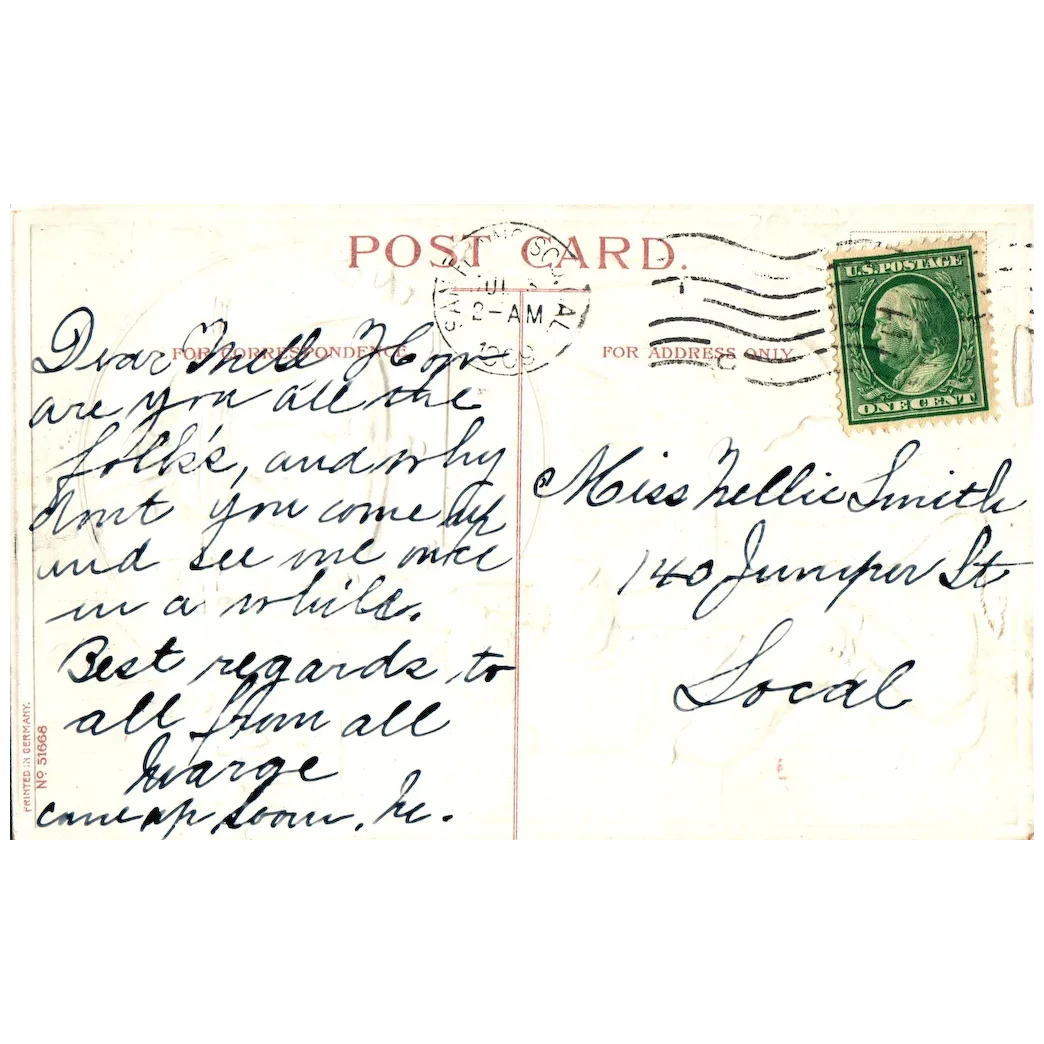 POST CARD.
SAN FRANCISCO, CAL
2-AM
1909
U.S. POSTAGE
ONE CENT
FOR CORRESPONDENCE
FOR ADDRESS ONLY
Dear Nell How
are you all the
folk's, and why
dont you come up
and see me once
in a while.
Best regards to
all from all
Marge
come up soon,
Miss Nellie Smith
140 Juniper St
Local
PRINTED IN GERMANY.
No 51668